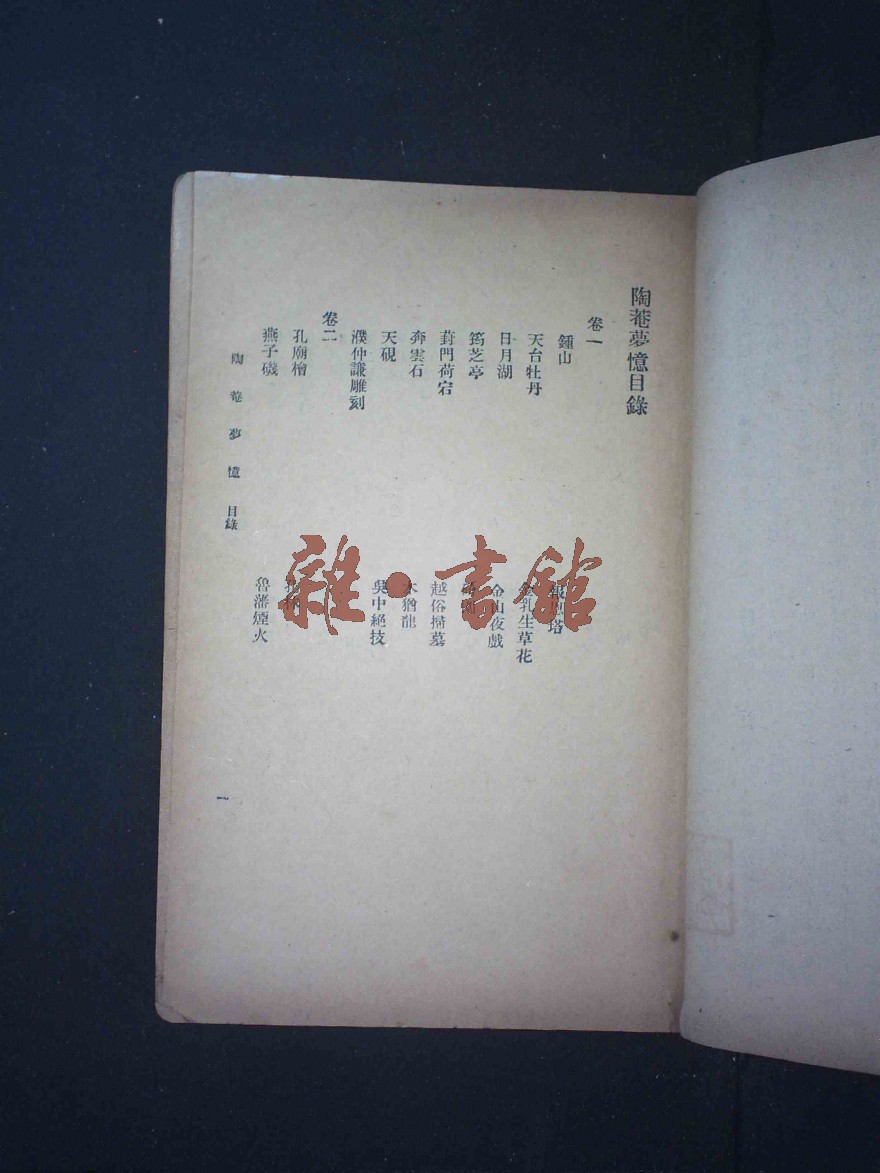 陶菴夢憶目錄
卷一
鍾山 塔
天台牡丹 金乳生草花
日月湖 金山夜戲
筠芝亭
葑門荷宕 越俗掃墓
奔雲石 木猶龍
天硯 吳中絕技
濮仲謙雕刻
卷二
孔廟檜 孔林
燕子磯 魯藩煙火
陶菴夢憶 目錄 一
雜·書館